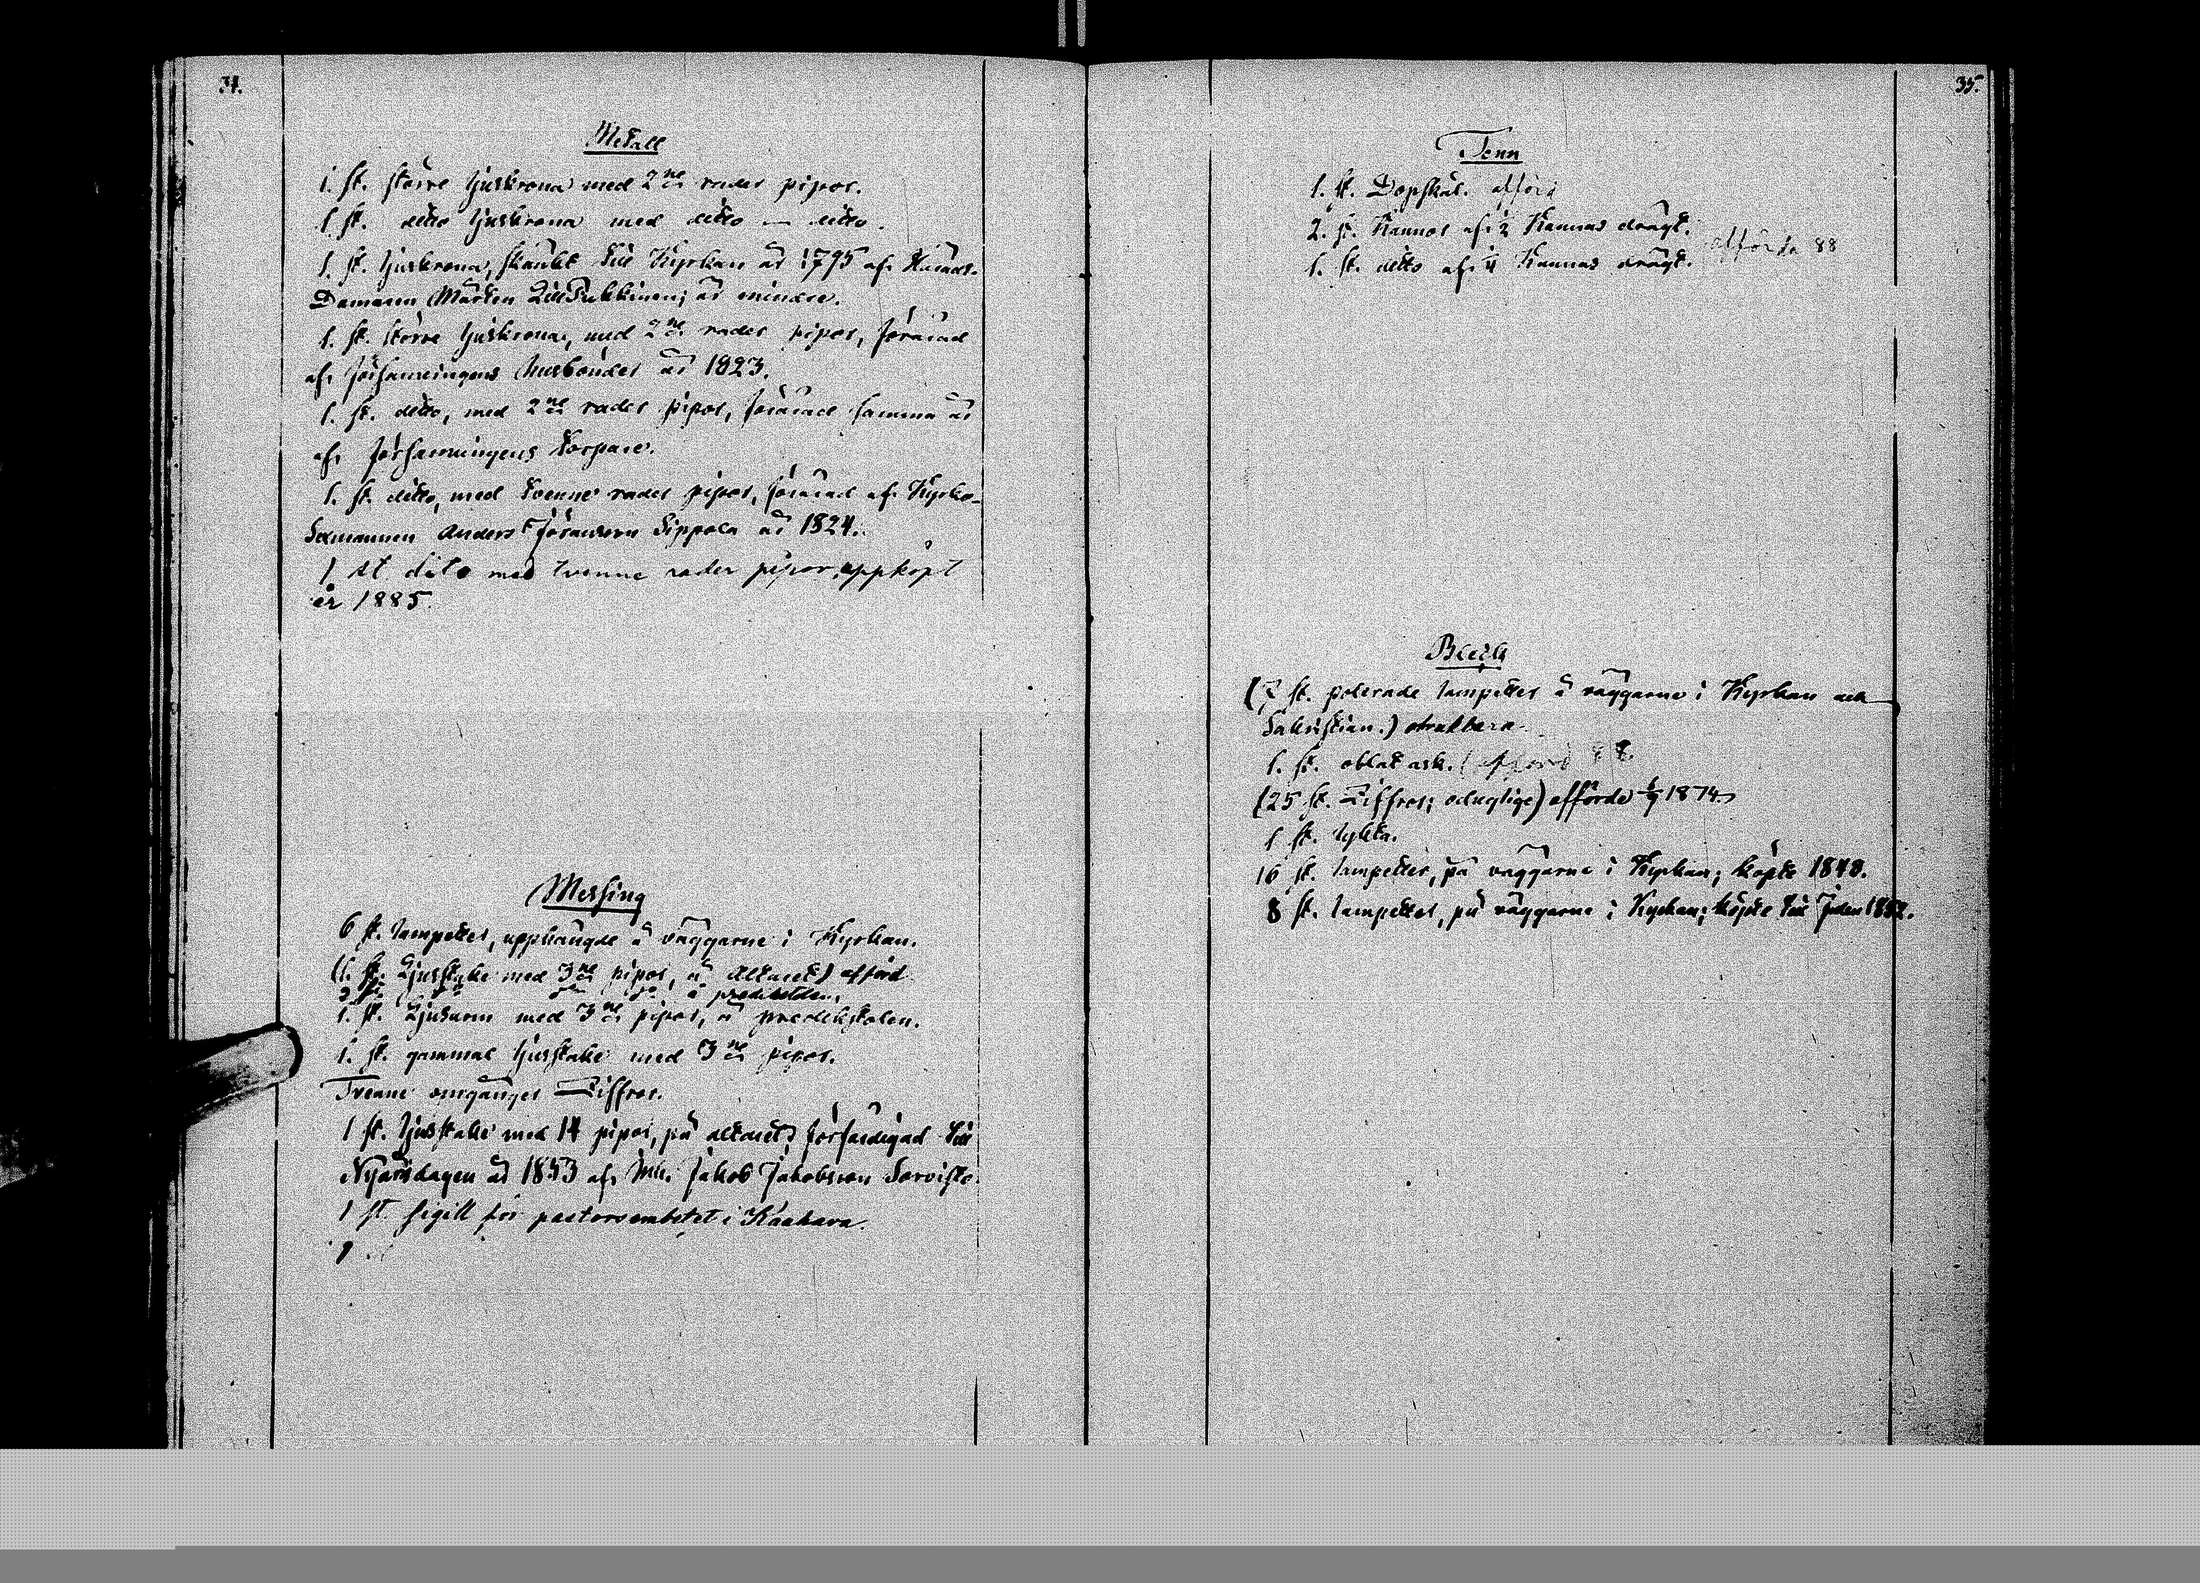 34.
Metall
1. st. större ljuskrona med 2ne rader pipor.
1 st. ditto ljuskrona med ditto — ditto.
1. st. ljuskrona, skänkt till Kyrkan år 1795 af Härads-
Domaren Mårten Lill; är mindre.
1. st. större ljuskrona, med 2ne rader pipor, förärad
af församlingens husbönder år 1823.
1. st. ditto, med 2ne rader pipor, förärad samma år
af församlingens torpare.
1. st. ditto, med tvenne rader pipor, förärad af Kyrko-
Sexmannen Anders Jöransson Sippola år 1824.
1 st dito med tvenne rader pipor, uppköpt
år 1885.
Messing
6 st. lampetter, upphängde å väggarne i Kyrkan.
(1. st. Ljusstake med 3ne pipor, å altaret) afförd
2 st å predikstolen,
1. st. Ljusarm med 3ne pipor, å predikstolen.
1. st. gammal ljusstake med 3ne pipor.
Tvenne omgånger Ziffror.
1 st. ljusstake med 14 pipor, på altaret, förfärdigad till
Nyårsdagen år 1853 af Jakob Jakobsson Sorvisto.
1 st. sigill för pastorsembetet i Kauhava.
1
35.
Tenn
1. st. Dopskål. afförd
2. st. Kannor af 2 Kannas drägt.
1. st. ditto af 4 Kannas drägt. afförda 88
Bleck
(7 st. polerade lampetter å väggarne i Kyrkan och
Sakristian.) obrukbara
1. st. oblat ask. (afförd 88
(25 st. Ziffror; oduglige) afförde 1874
1 st. lykta.
16 st. lampetter, på väggarne i Kyrkan; köpte 1848.
8 st. lampetter, på väggarne i Kyrkan; köpte till Julen 1852.